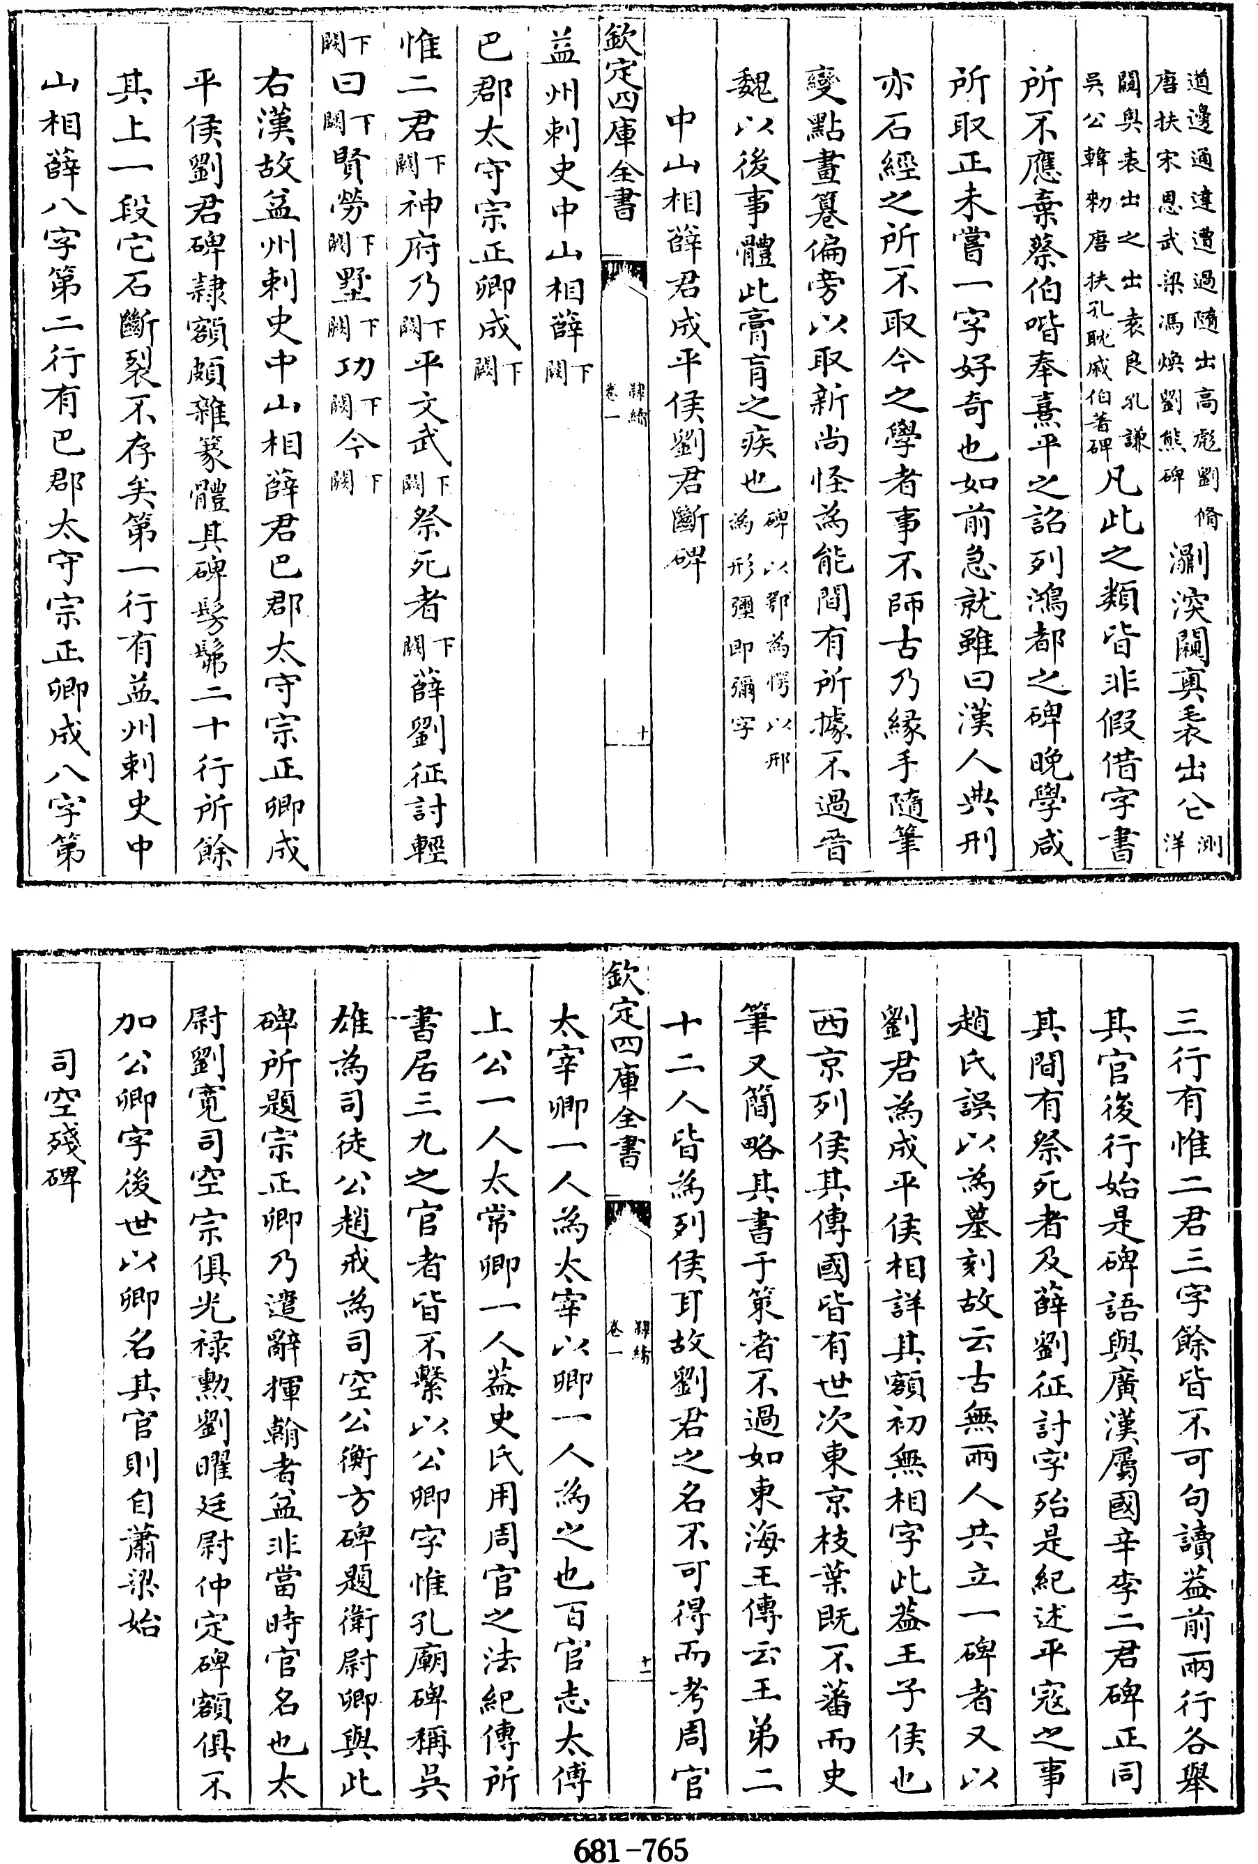 遒邊通達遭過隨出高彪劉脩
唐扶宋恩武梁馮煥劉熊碑
㶜湥闑㒇裠出仌測
洋
闑㒇表出之出袁良孔謙
吳公韓勑唐扶孔耽戚伯著碑
凡此之類皆非假借字書
所不應棄蔡伯喈奉熹平之詔列鴻都之碑晚學咸
所取正未嘗一字好奇也如前急就雖曰漢人典刑
亦石經之所不取今之學者事不師古乃縁手隨筆
變㸃畫篡偏旁以取新尚怪為能間有所據不過晉
魏以後事體此膏肓之疾也
碑以鄂為愕以邢
為形彊即彌字
中山相薛君成平侯劉君斷碑
欽定四庫全書
隸續
卷一
十
益州刺史中山相薛闕下
巴郡太守宗正卿成闕下
惟二君闕下神府乃闕下平文武闕下祭死者闕下薛劉征討輕
闕下曰闕下賢勞闕下墅闕下功闕下今闕下
右漢故益州刺史中山相薛君巴郡太守宗正卿成
平侯劉君碑隸額頗雜篆體其碑髣髴二十行所餘
其上一段它石斷裂不存矣第一行有益州刺史中
山相薛八字第二行有巴郡太守宗正卿成八字第
三行有惟二君三字餘皆不可句讀益前兩行各舉
其官後行始是碑語與廣漢屬國辛李二君碑正同
其間有祭死者及薛劉征討字殆是紀述平寇之事
趙氏誤以為墓刻故云古無兩人共立一碑者又以
劉君為成平侯相詳其額初無相字此葢王子侯也
西京列侯其傳國皆有世次東京枝葉既不蕃而史
筆又簡略其書于策者不過如東海王傳云王弟二
十二人皆為列侯耳故劉君之名不可得而考周官
欽定四庫全書
隸續
卷一
十一
太宰卿一人為太宰以卿一人為之也百官志太傅
上公一人太常卿一人葢史氏用周官之法紀傳所
書居三九之官者皆不繫以公卿字惟孔廟碑稱吳
雄為司徒公趙戒為司空公衡方碑題衛尉卿與此
碑所題宗正卿乃遣辭揮翰者益非當時官名也太
尉劉寬司空宗俱光禄勲劉曜廷尉仲定碑額俱不
加公卿字後世以卿名其官則自蕭梁始
司空殘碑
681-765